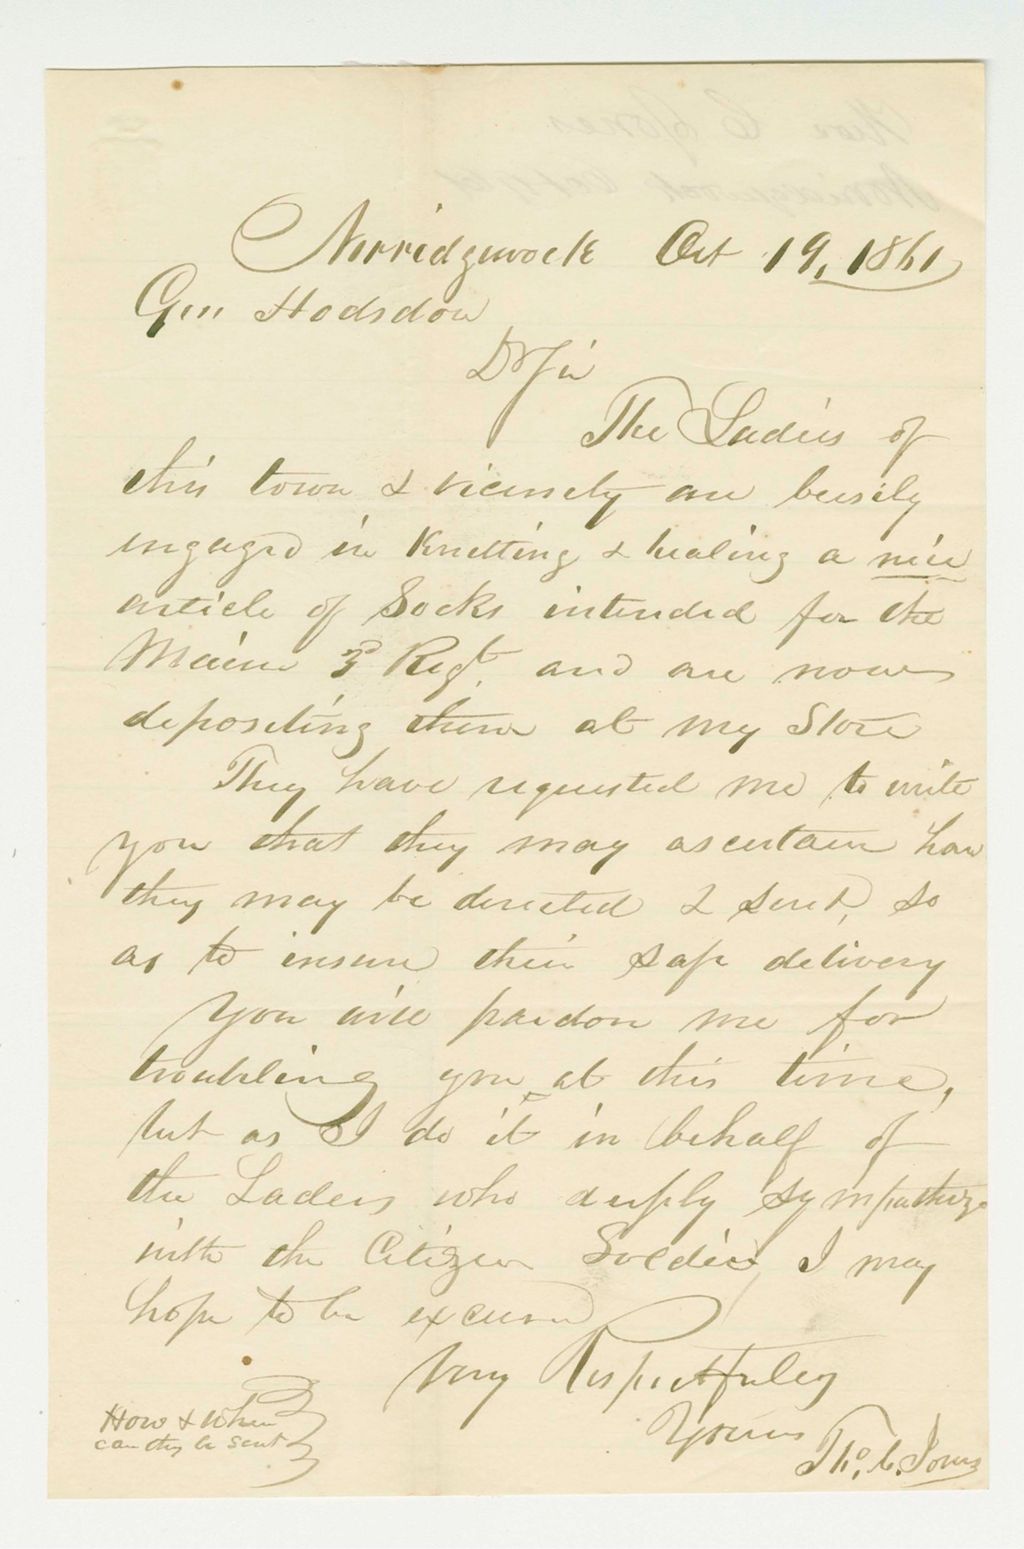 Norridgewock Oct 19, 1861
Gen Hodsdon
Dr Sir
The Ladies of
this town & vicinety are busily
engaged in Knitting & healing a nice
article of Socks intended for the
Maine 3d Regt. and are now
depositing them at my Store
They have requested me to write
you that they may ascertain how
they may be directed & sent, so
as to insure their safe delivery
You will pardon me for
troubling you at this time,
but as I do it in behalf of
the Ladeis who deeply sympathize
with the Citizen Soldier, I may
hope to be excused
Very Respectfuley
Yours
Tho. C. Jones
How & When
can they be sent